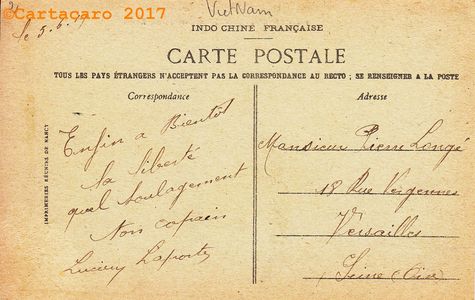 ©Cartacaro 2017
VietNam
Le 5.6.
INDO CHINE FRANÇAISE
CARTE POSTALE
TOUS LES PAYS ÉTRANGERS N'ACCEPTENT PAS LA CORRESPONDANCE AU RECTO ; SE RENSEIGNER A LA POSTE
Correspondance
Adresse
IMPRIMERIES RÉUNIES DE NANCY
Enfin a Bientôt
la liberté
quel soulagement
Ton copain
Lucien Laporte
Monsieur Pierre Longé
18 Rue Vergennes
Versailles
Seine (Oise)